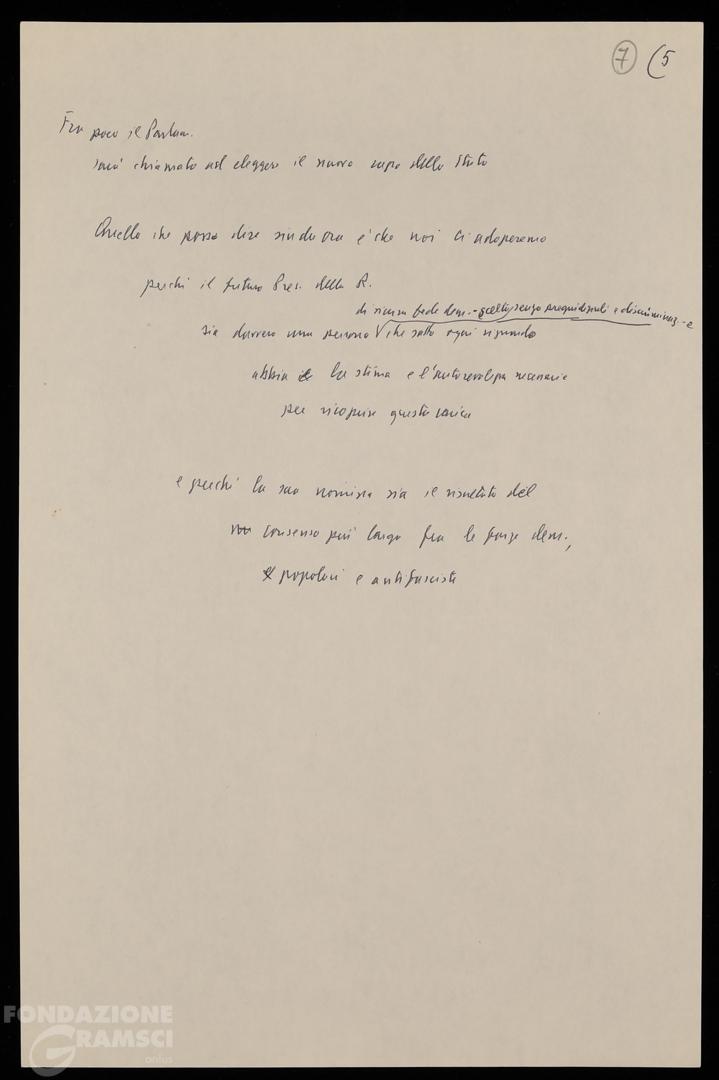 7 (5
Fra poco il Parlam.
sarà chiamato ad eleggere il nuovo capo dello Stato
Quello che posso dire sin da ora è che noi ci adopereremo
perché il futuro Pres. della R.
di sicura fede dem. - scelta senza pregiudiziali e discriminaz. - e
sia davvero una persona che sotto ogni riguardo
abbia la stima e l'autorevolezza necessarie
per ricoprire questa carica
e perché la sua nomina sia il risultato del
consenso più largo fra le forze dem.,
popolari e antifasciste
FONDAZIONE
GRAMSCI
onlus